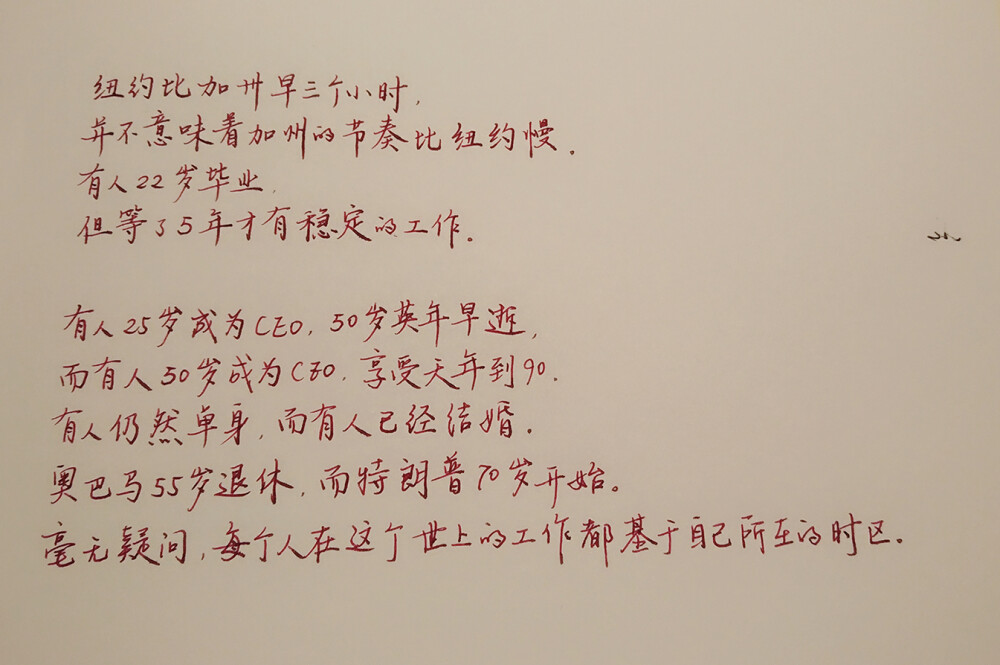 纽约比加州早三个小时,
并不意味着加州的节奏比纽约慢.
有人22岁毕业,
但等了5年才有稳定的工作.
有人25岁成为CEO,50岁英年早逝,
而有人50岁成为CEO,享受天年到90.
有人仍然单身,而有人已经结婚.
奥巴马55岁退休,而特朗普70岁开始。
毫无疑问,每个人在这个世上的工作都基于自己所在的时区.